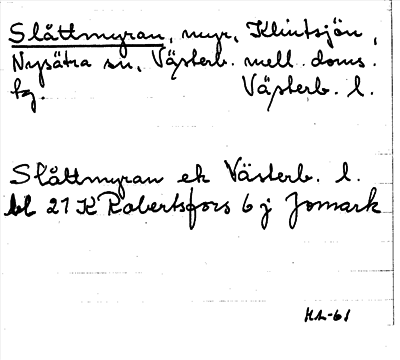 Slåttmyran, myr, Klintsjön,
Nysätra sn, Västerb. mell. doms.
tg. Västerb. l.
Slåttmyran ek Västerb. l.
bl 21 K Robertsfors 6 j Jomark
HL-61